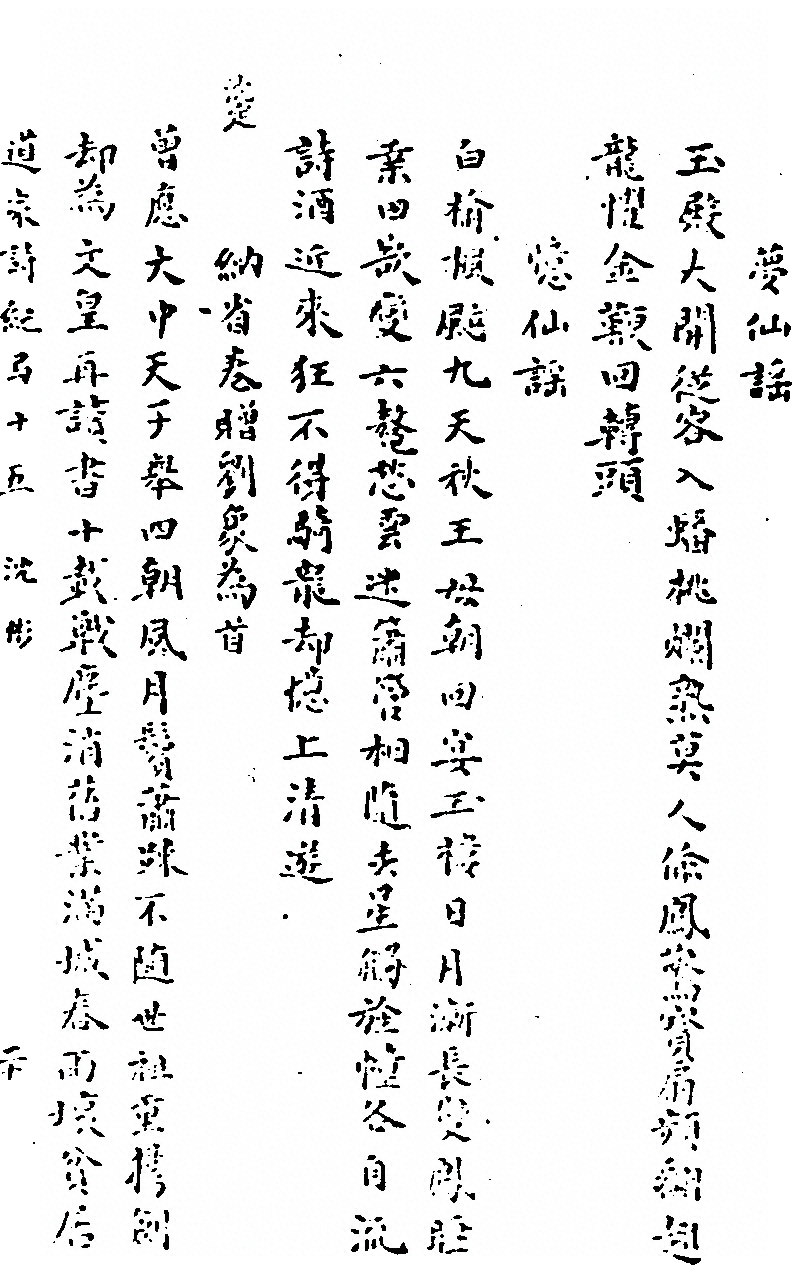 夢仙謡
玉殿大開從客入蟠桃爛熟莫人偷鳳驚寶扇頻翻翅
龍懼金鞭回轉頭
憶仙謡
白榆風颭九天秋王母朝回宴玉樓日月漸長雙鳳睡
桑田欲變六鼇愁雲迷簫管相隨去星觧旌幢各自流
詩酒近來狂不得騎龍却憶上清遊
納省卷贈劉象為首
曾應大中天子舉四朝風月鬢蕭踈不隨世祖重擕劍
却為文皇再讀書十載戰塵消舊業滿城春雨壞貧居
道家詩紀㢧十五 沈彬